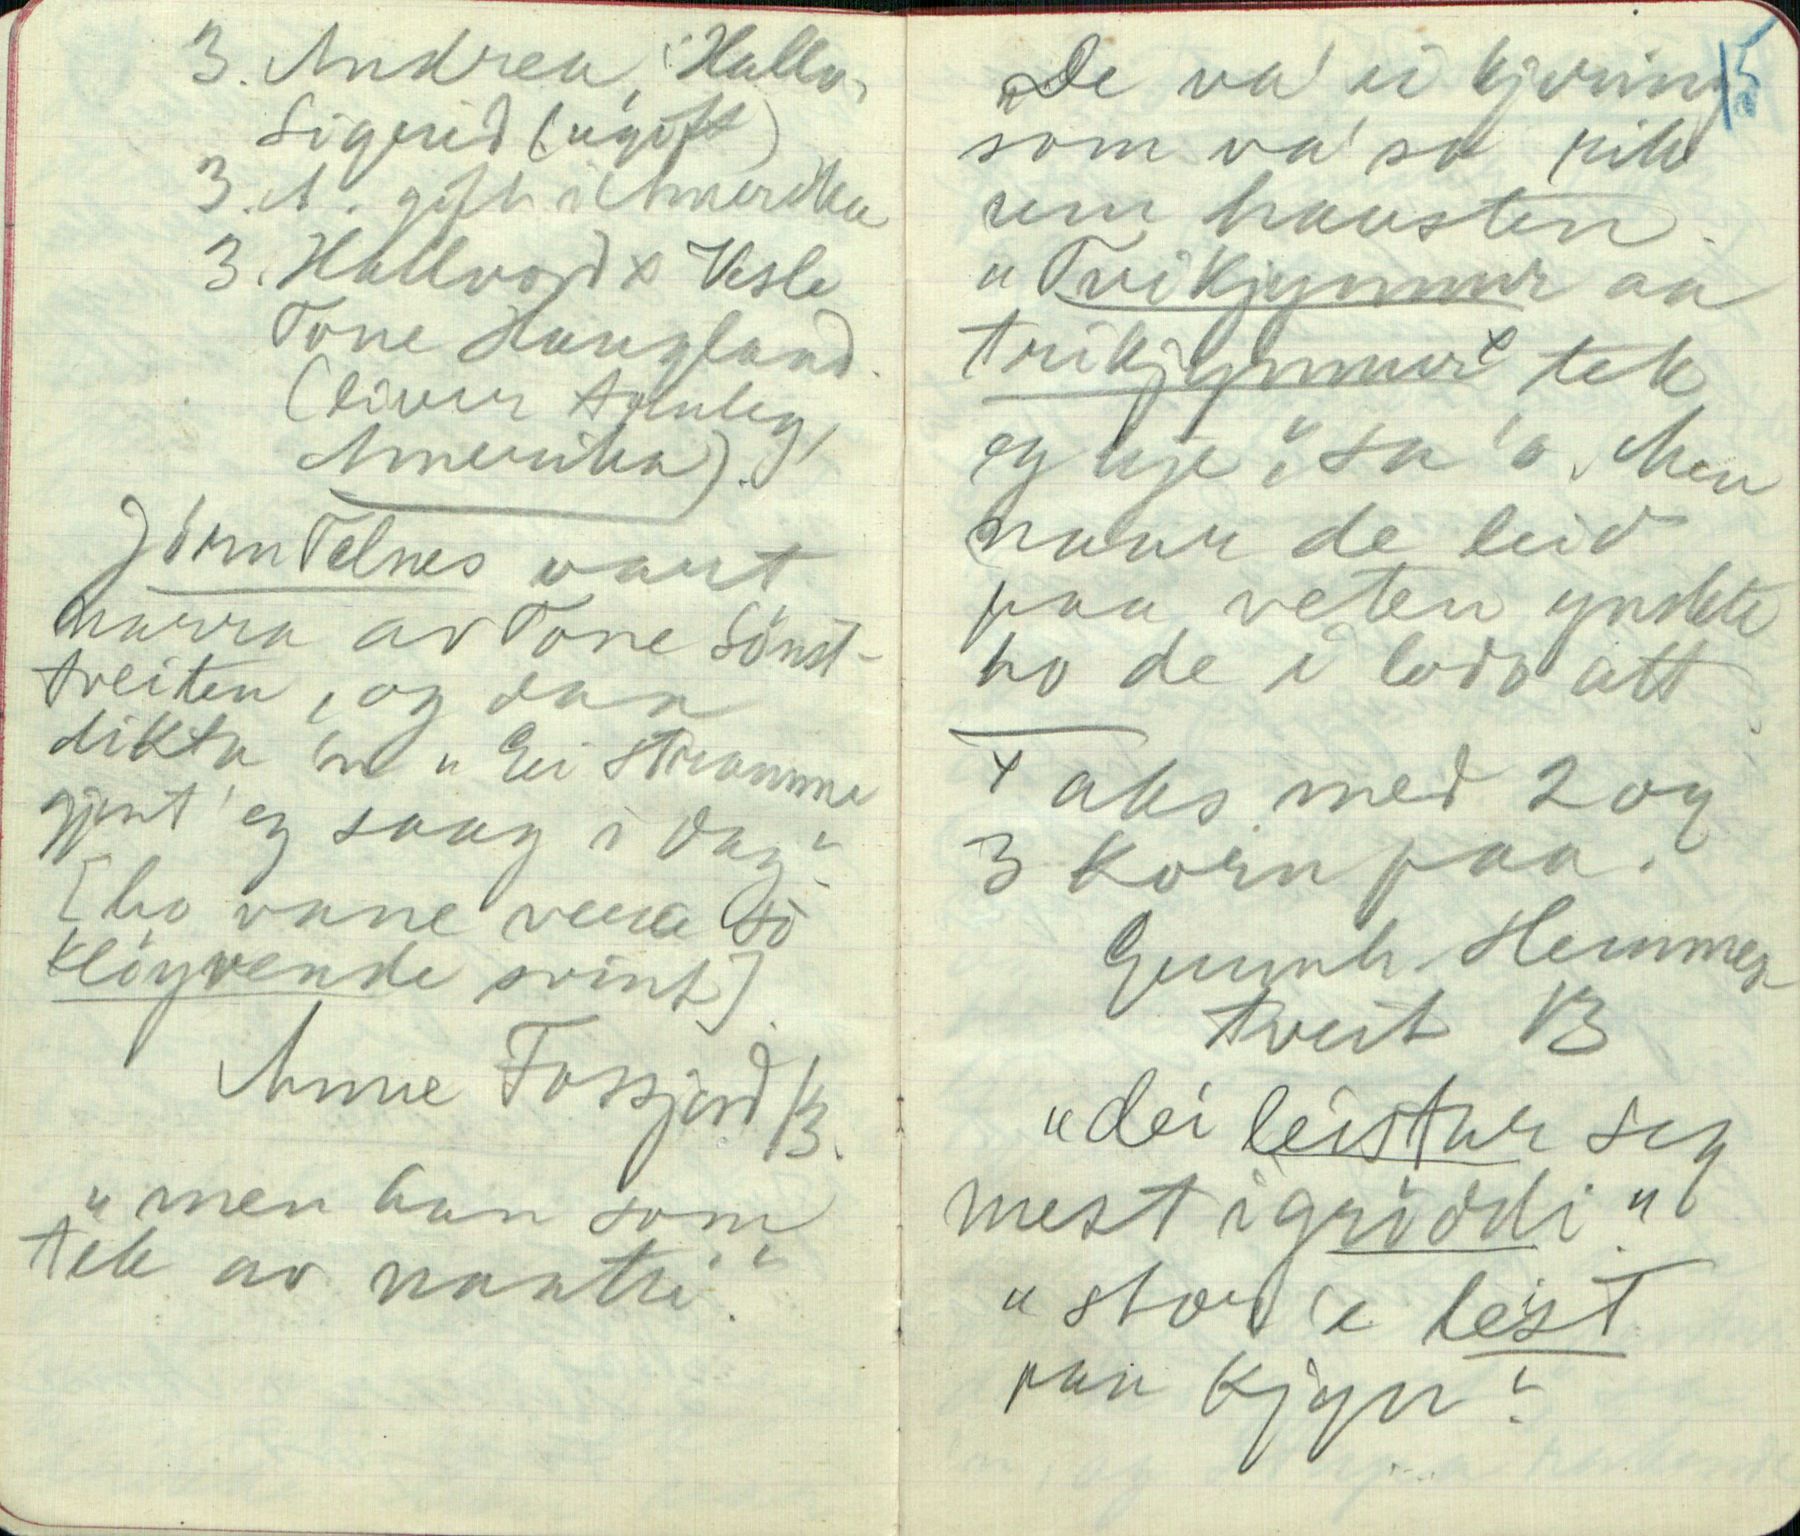 3. Andrea, Hallv,
Sigrid (ugift)
3. A. gift i Amerika
3. Hallvord x Vesle
Tone Haugland.
(liver truleg,
Amerika).
Jörn Telnes vart
narra av Tone Sönst-
treiten, og daa
dikta 'n „Ei stramme
gjent' eg saag i dag"
[ho vane vera so
kløyvende svint].
Anne Fossjord B.
„men han som
tek av naatti".
15
„De va' ei kjæring
som va' so rik
um hausten.
„Tvikjynnur aa
trikjynnurˣ tek
eg kje", sa 'o. Men
naar de leid
paa veten ynskte
ho de i lodo att
ˣ aks med 2 og
3 korn paa.
Gunnh. Hemmes-
tveit B
„dei leistar seg
mest i gröddi"
„stor 'e leist
paa kjyn"